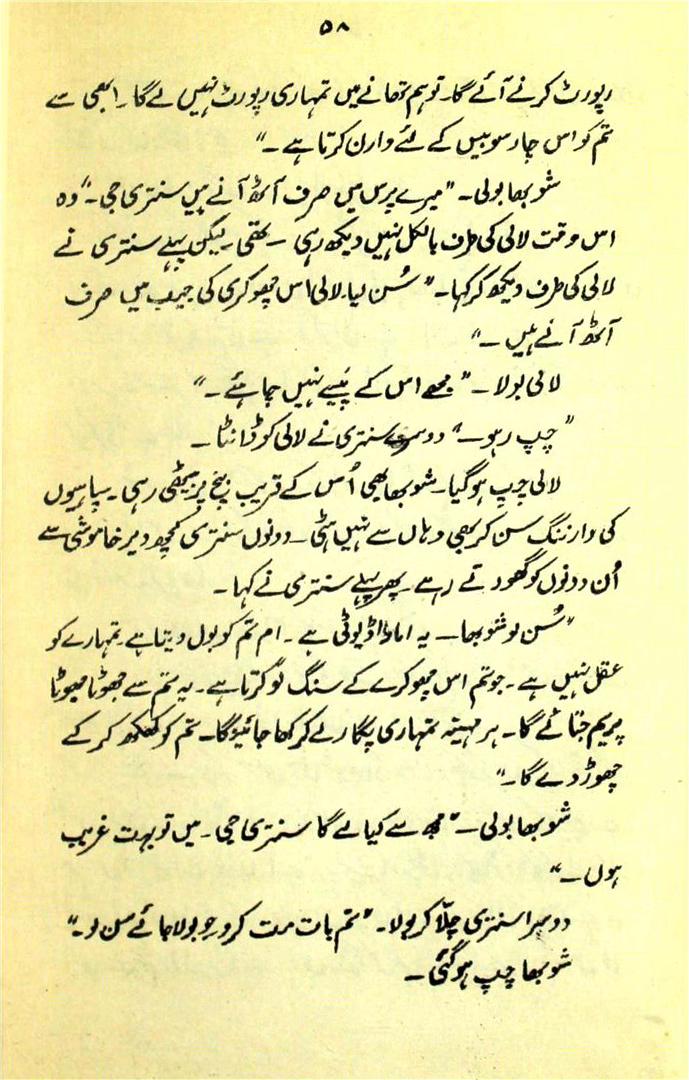 ۵۸
رپورٹ کرنے آئے گا۔ تو ہم تھانے میں تمہاری رپورٹ نہیں لے گا۔ ابھی سے
تم کو اس چار سو بیس کے لئے وارن کرتا ہے۔"
شوبھا بولی۔ "میرے پرس میں صرف آٹھ آنے ہیں سنتری جی۔" وہ
اس وقت لالی کی طرف بالکل نہیں دیکھ رہی ۔ تھی۔ لیکن پہلے سنتری نے
لالی کی طرف دیکھ کر کہا۔ "سُن لیا۔ لالی اس چھوکری کی جیب میں صرف
آٹھ آنے ہیں۔"
لالی بولا۔ "مجھے اس کے پیسے نہیں چاہئے۔"
"چپ رہو۔" دوسرے سنتری نے لالی کو ڈانٹا۔
لالی چپ ہو گیا۔ شوبھا بھی اُس کے قریب بنچ پر بیٹھی رہی۔ سپاہیوں
کی وارننگ سن کر بھی وہاں سے نہیں ہٹی۔ دونوں سنتری کچھ دیر خاموشی سے
اُن دونوں کو گھورتے رہے۔ پھر پہلے سنتری نے کہا۔
"سُن لو شوبھا۔ یہ امارا ڈیوٹی ہے۔ ام تم کو بول دیتا ہے۔ تمہارے کو
عقل نہیں ہے۔ جو تم اس چھوکرے کے سنگ لَو کرتا ہے۔ یہ تم سے جھوٹا موٹا
پریم جتائے گا۔ ہر مہینہ تمہاری پگار لے کر کھا جائیگا۔ تم کو کھکھ کر کے
چھوڑ دے گا۔"
شوبھا بولی۔ "مجھ سے کیا لے گا سنتری جی۔ میں تو بہت غریب
ہوں۔"
دوسرا سنتری چلّا کر بولا۔ "تم بات مت کرو۔ جو بولا جائے سن لو۔"
شوبھا چپ ہو گئی۔